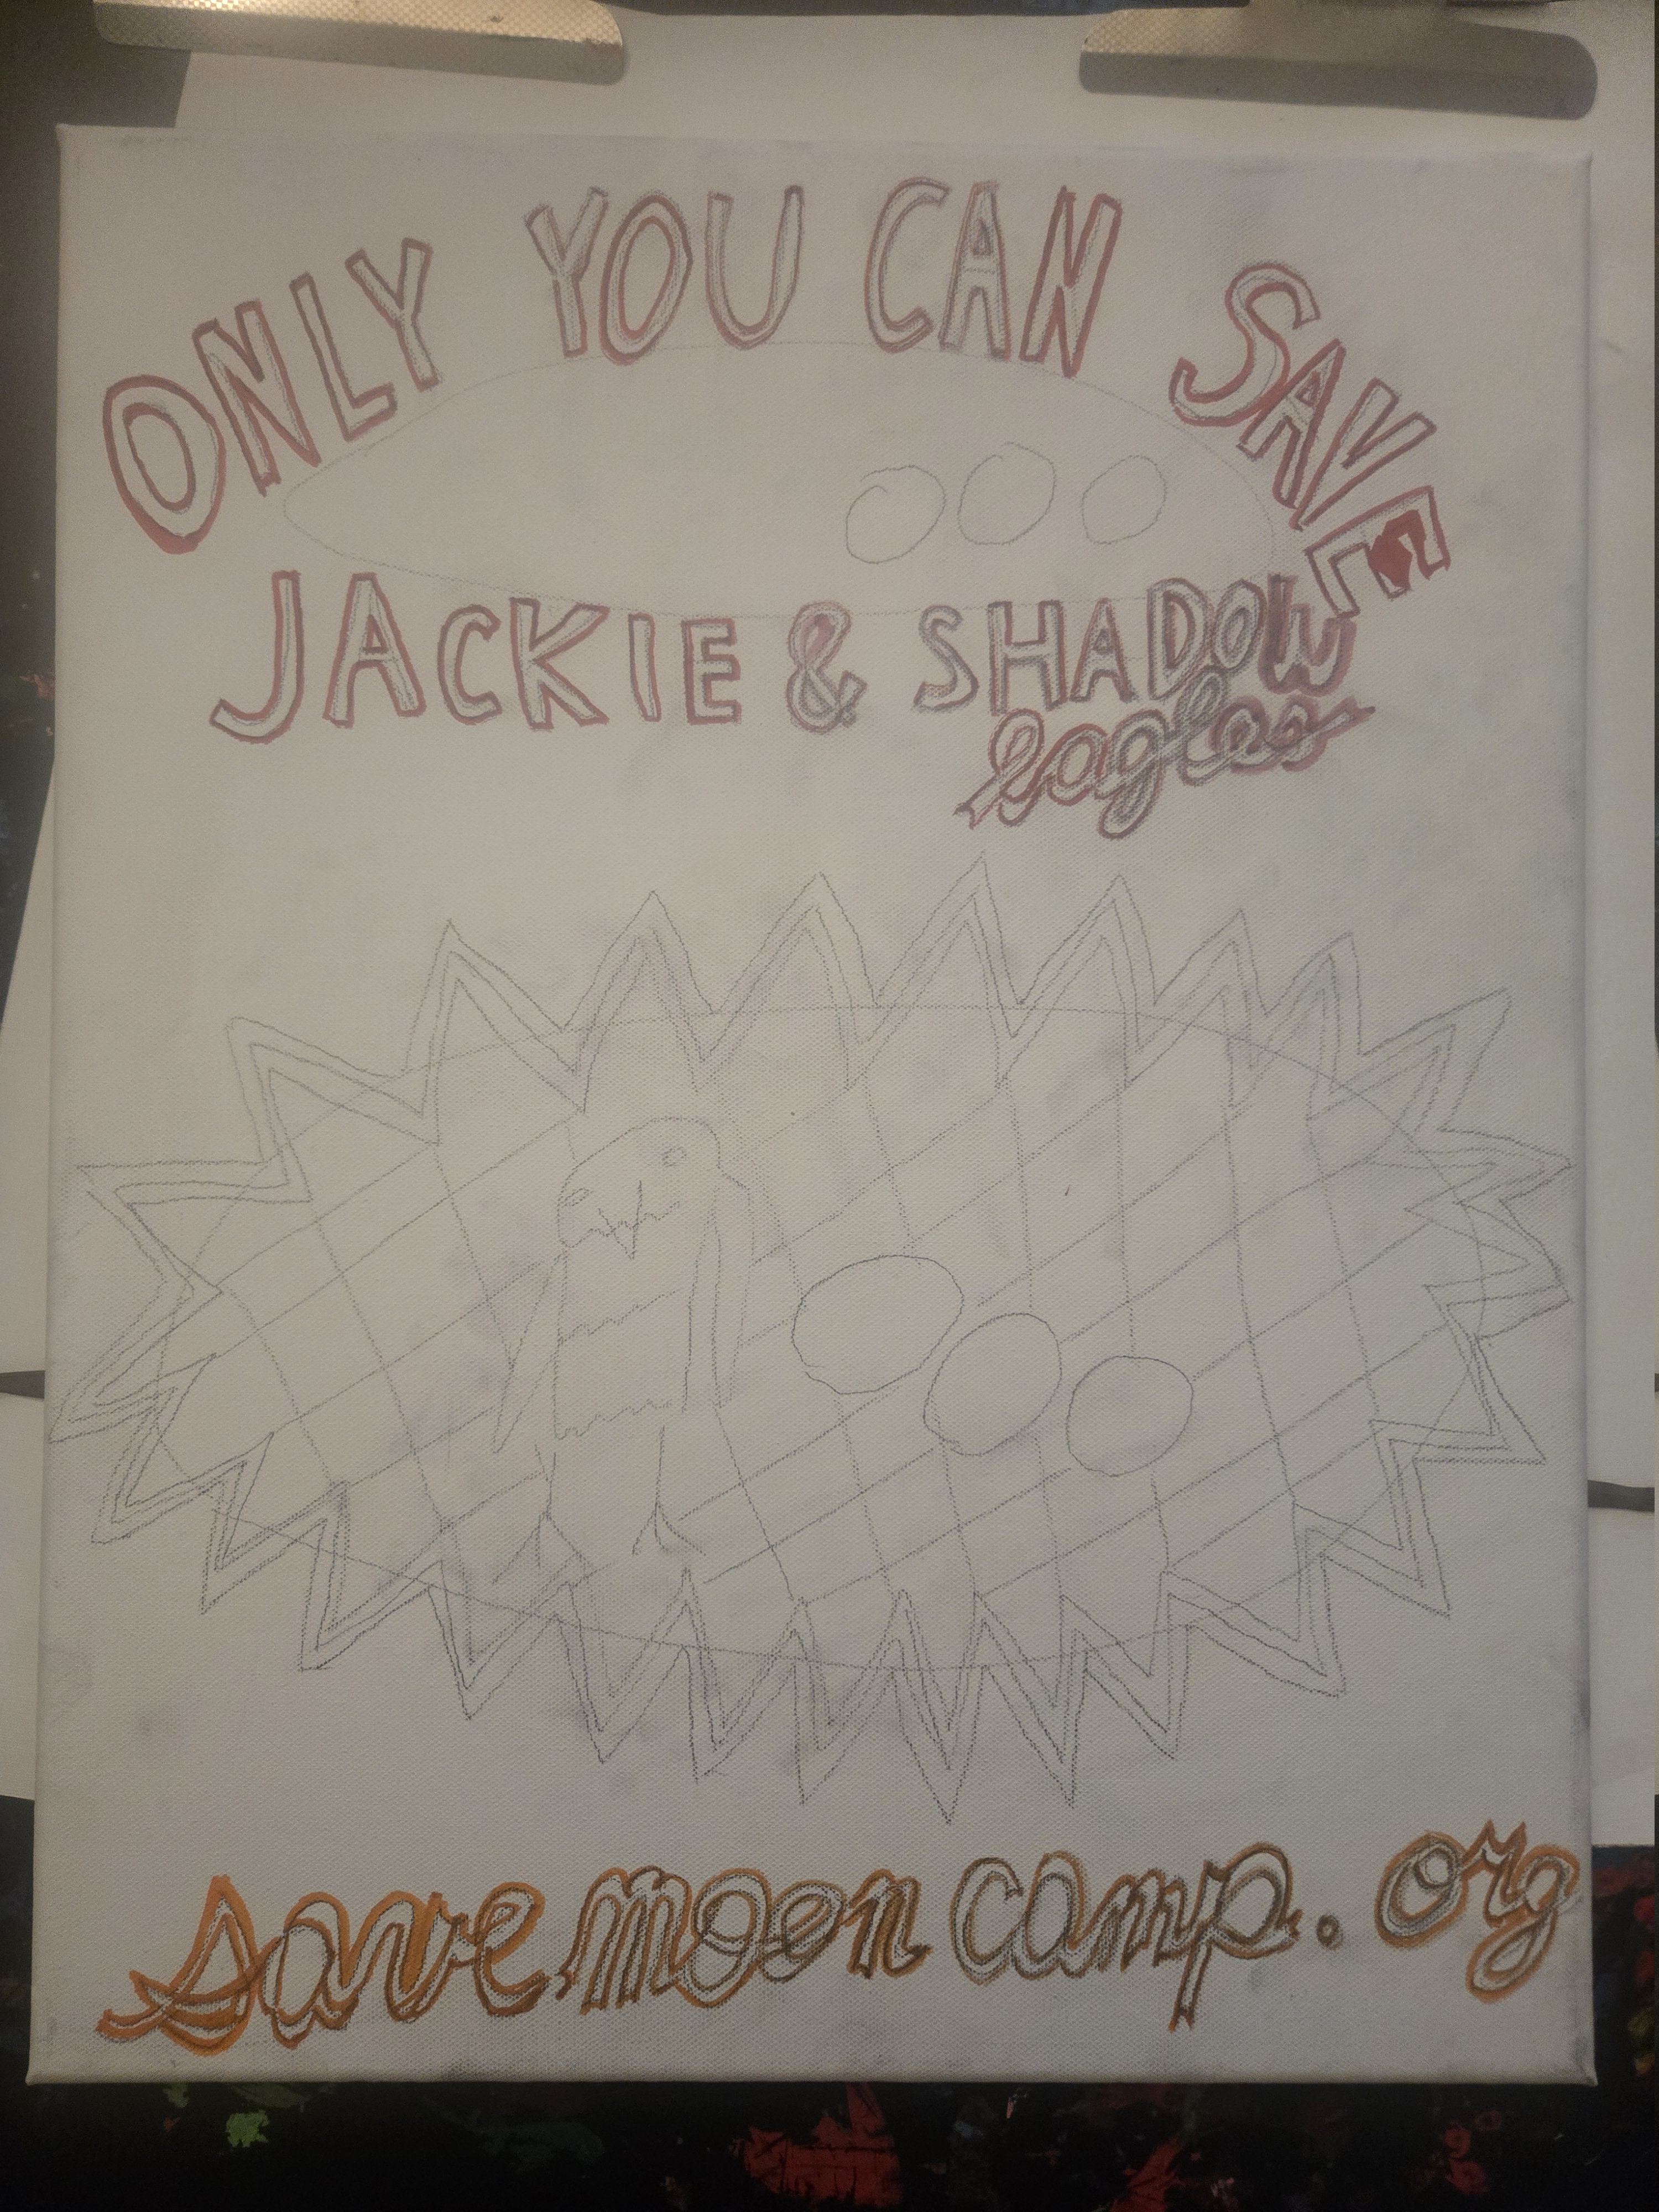 ONLY YOU CAN SAVE
JACKIE & SHADOW
eagles
savemooncamp.org